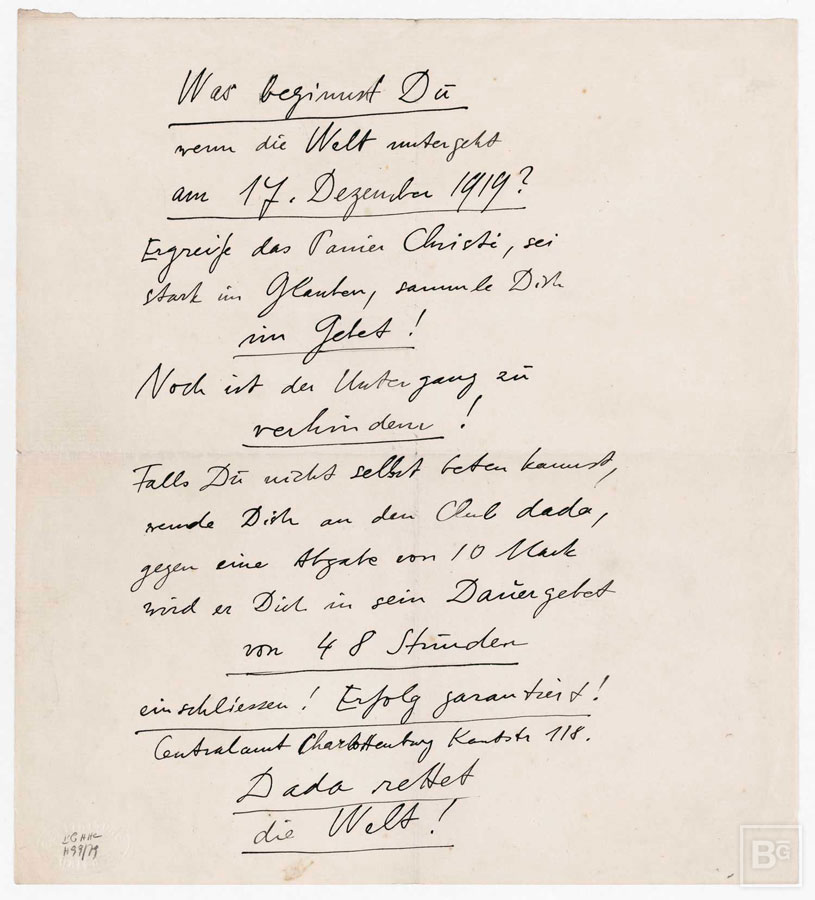 Was beginnst Du
wenn die Welt untergeht
am 17. Dezember 1919?
Ergreife das Panier Christi, sei
stark im Glauben, sammle Dich
im Gebet!
Noch ist der Untergang zu
verhindern!
Falls Du nicht selbst beten kannst,
wende Dich an den Club dada,
gegen eine Abgabe von 10 Mark
wird er Dich in sein Dauergebet
von 48 Stunden
einschliessen! Erfolg garantiert!
Centralamt Charlottenburg Kantstr 118.
Dada rettet
die Welt!
BG